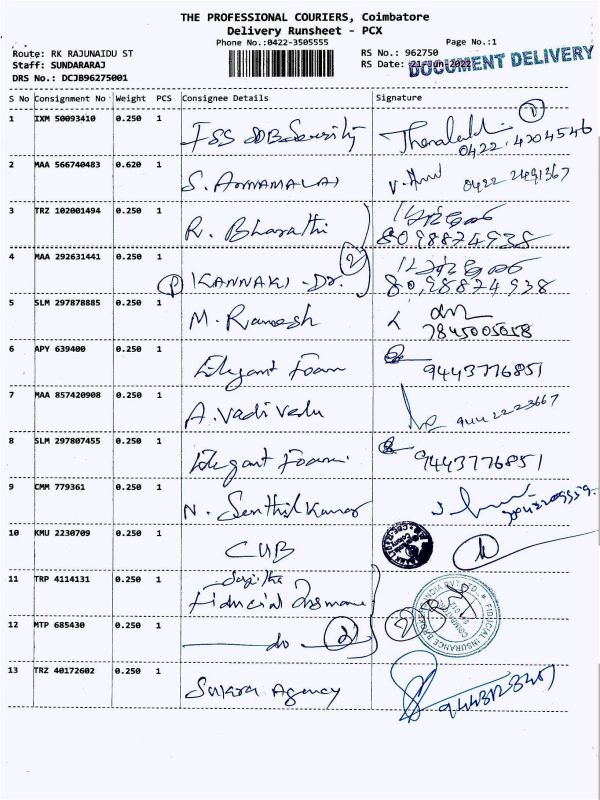 THE PROFESSIONAL COURIERS, Coimbatore
Delivery Runsheet - PCX
Phone No.:0422-3505555
Page No.:1
Route: RK RAJUNAIDU ST
RS No.: 962750
Staff: SUNDARARAJ
RS Date: 21-Jun-2022
DOCUMENT DELIVERY
DRS No.: DCJB96275001
S No Consignment No Weight PCS Consignee Details Signature
1 IXM 50093410 0.250 1 Security 1
0422.4204546
2 MAA 566740483 0.620 1 S. ANNAMALAI 0422 2491367
3 TRZ 102001494 0.250 1 R. Bharathi
8098874938
4 MAA 292631441 0.250 1 P KANNAKI - Dr. 2
8098874938
5 SLM 297878885 0.250 1 M. Ramesh
7845005058
6 APY 639400 0.250 1 Elegant Foam 9443776851
7 MAA 857420908 0.250 1 A. Vadivelu 9442223667
8 SLM 297807455 0.250 1 Elegant Foam 9443776851
9 CMM 779361 0.250 1 N. Senthil Kumar
10 KMU 2230709 0.250 1 CUB
11 TRP 4114131 0.250 1
Fiducial Insurance
12 MTP 685430 0.250 1 do 2 2
FIDUCIAL INSURANCE INDIA PVT LTD.
13 TRZ 40172602 0.250 1 Sakara Agency